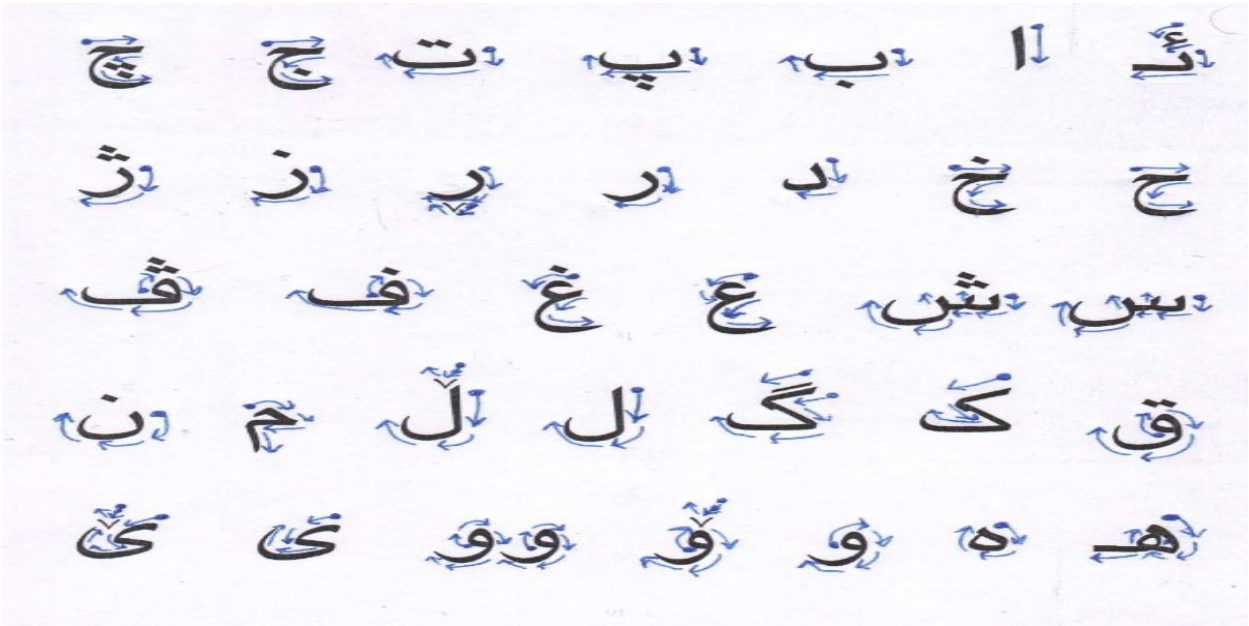 ئـ ا ب پ ت ج چ
ح خ د ر ڕ ز ژ
س ش ع غ ف ڤ
ق ک گ ل ڵ م ن
هـ ه و ۆ وو ی ێ